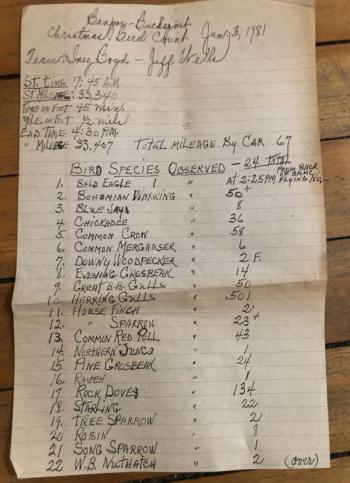 Bangor-Bucksport
Christmas Bird Count. Jan. 3, 1981
Team: Inez Boyd - Jeff Wells
ST. TIME 7:45 A.M
ST. MILEAGE: 33,340
TIME ON FOOT 45 min.
MILE. ON FOOT 1/2 mile
END TIME 4:30 P.M.
" MILEAGE 33,407 TOTAL MILEAGE BY CAR 67
BIRD SPECIES OBSERVED - 24 TOTAL
1. BALD EAGLE 1 " AT 2:25PM FROM BACK OF FLYING
2. BOHEMIAN WAXWING " 50+
3. BLUE JAYS " 8
4. CHICKADEE " 36
5. COMMON CROW " 58
6. COMMON MERGANSER " 6
7. DOWNY WOODPECKER " 2 F.
8. EVENING GROSBEAK " 14
9. GREAT B.B. GULLS " 50
10. HERRING GULLS " 501
11. HOUSE FINCH " 2
12. " SPARROW " 23+
13. COMMON RED POLL " 43
14. NORTHERN JUNCO " 1
15. PINE GROSBEAK " 24
16. RAVEN " 1
17. ROCK DOVES " 134
18. STARLING " 22
19. TREE SPARROW " 2
20 ROBIN " 8
21 SONG SPARROW " 1
22 W.B. NUTHATCH " 2 (over)